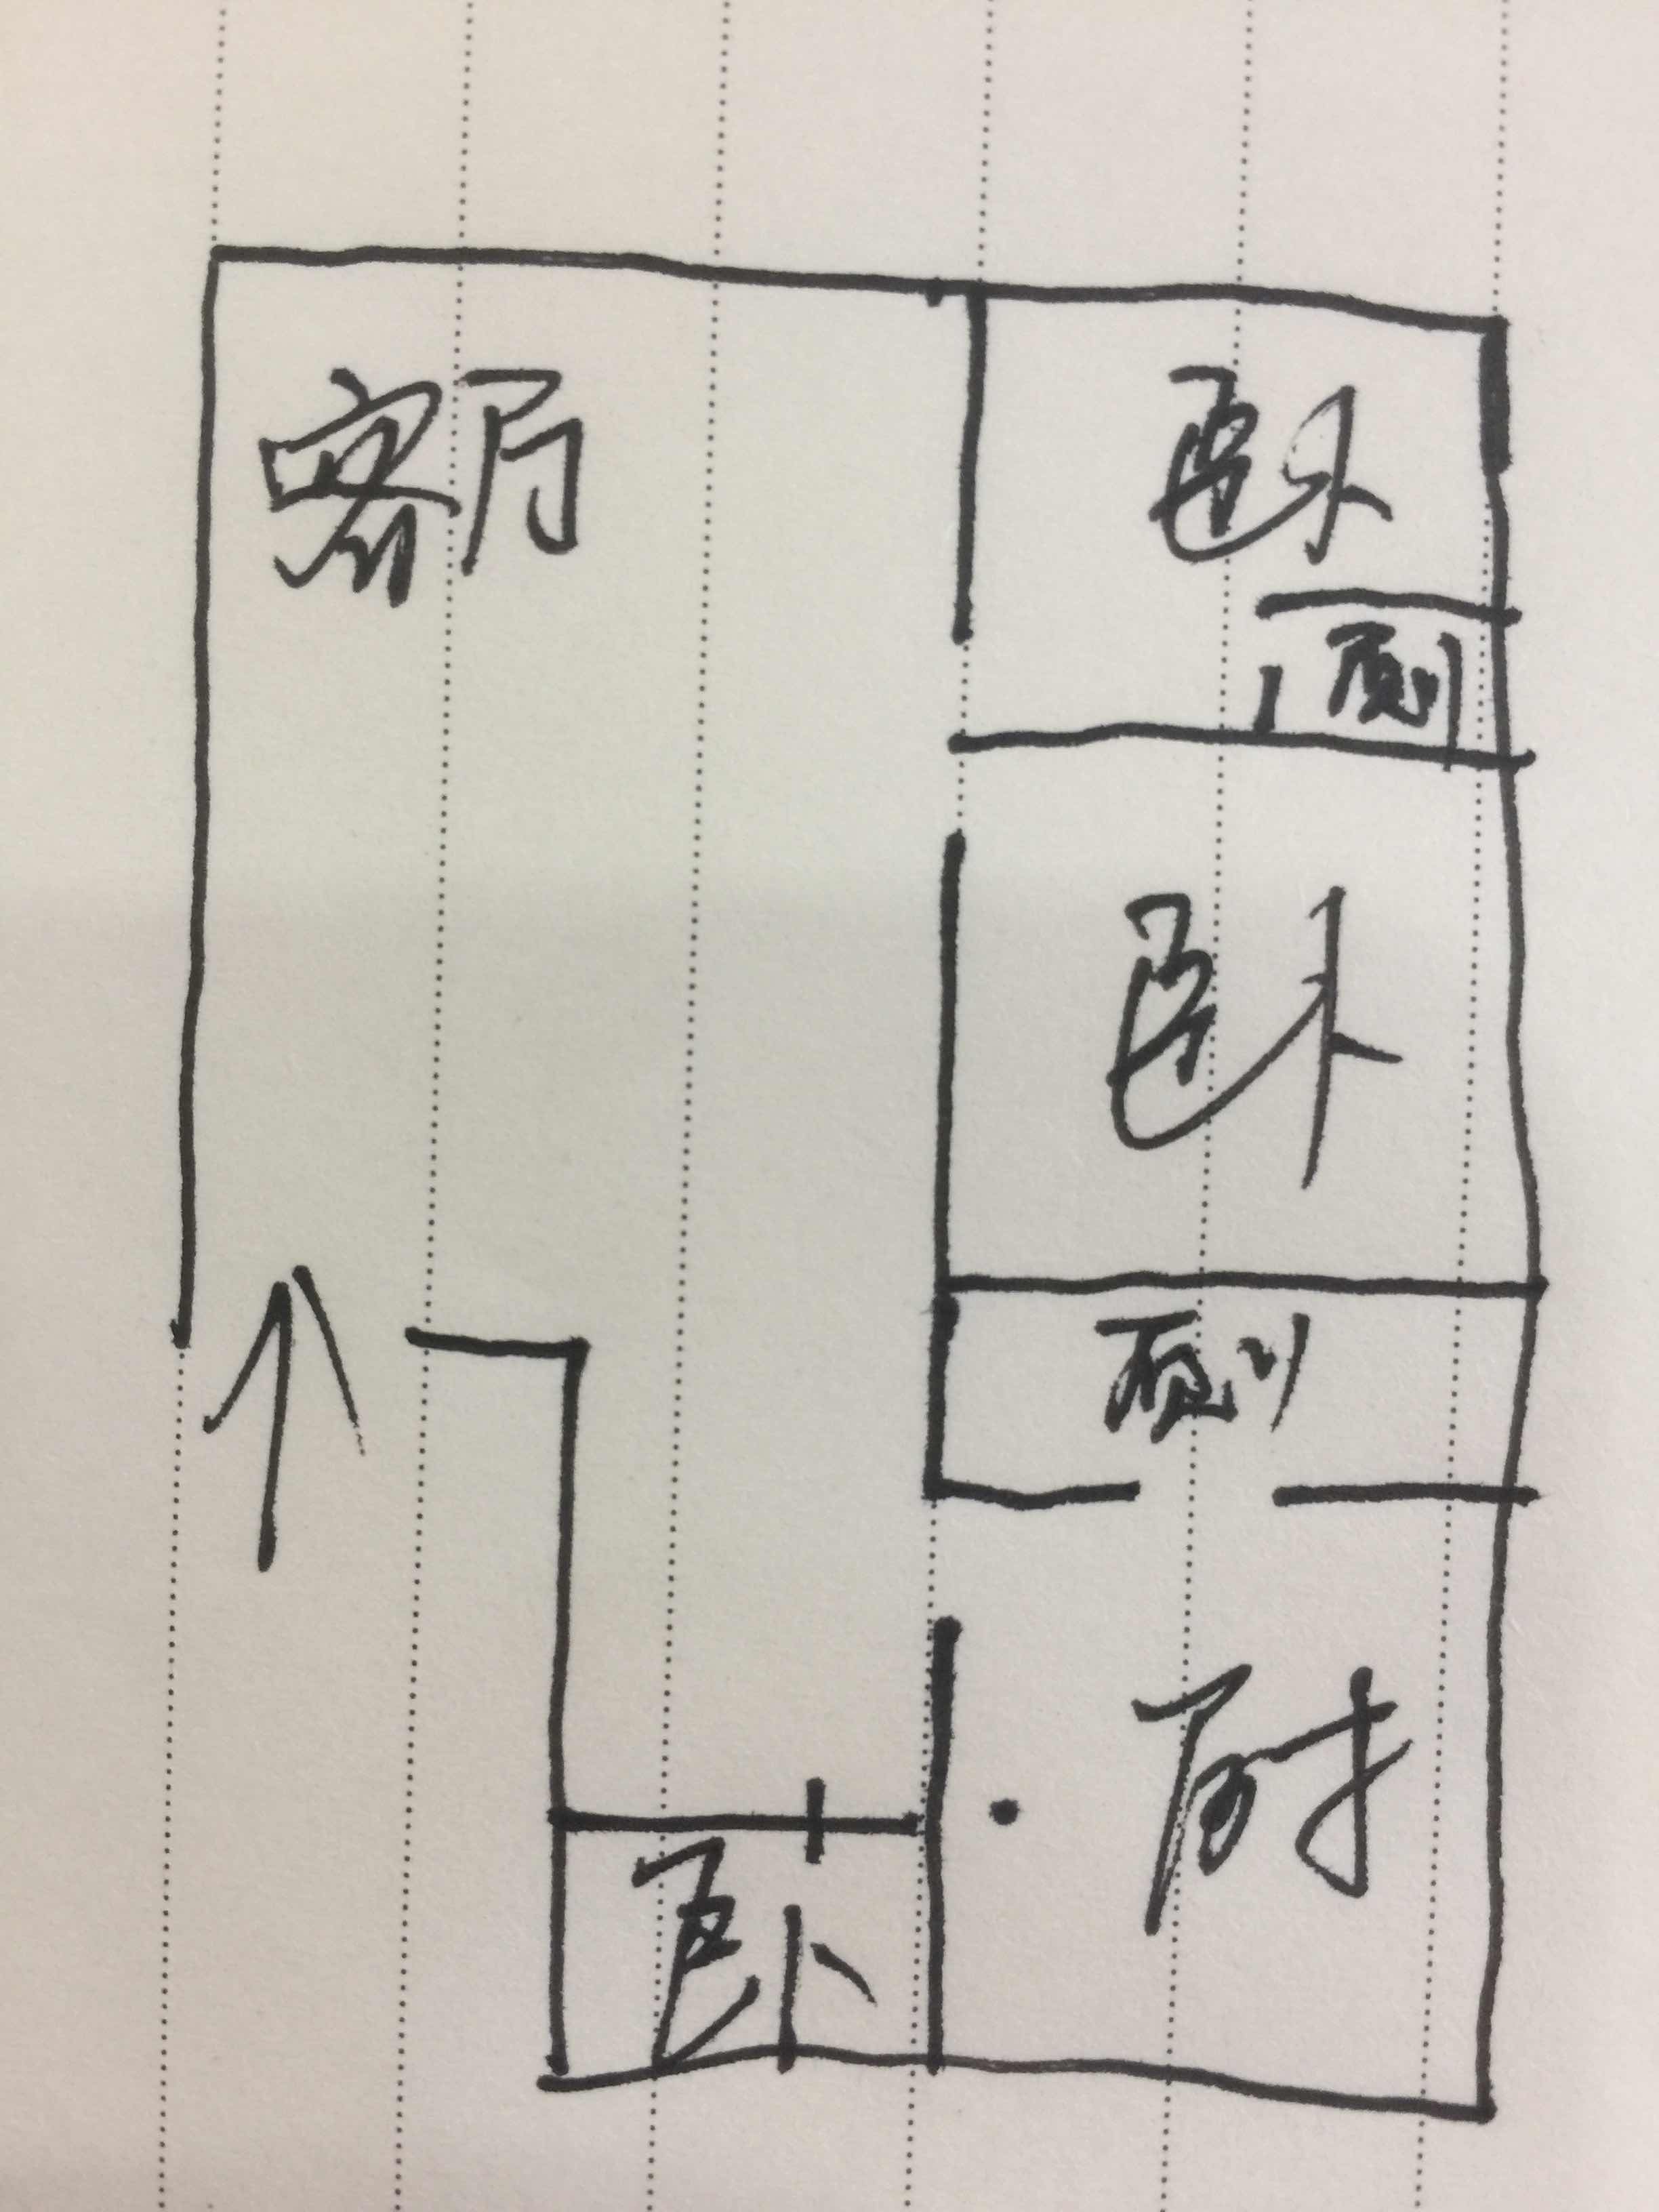 客厅
卧
厕
卧
厕
厨
卧